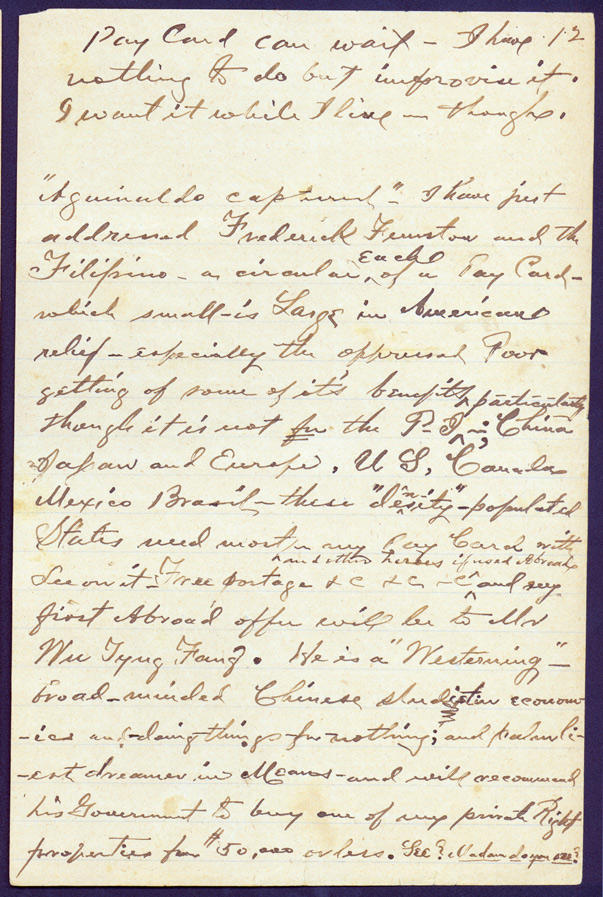 Pay Card can wait – I have 12
nothing to do but improvise it.
I want it while I live – though.
"Aguinaldo captured" – I have just
addressed Frederick Funston and the
Filipino – a circular, each of a Pay Card –
which small – is Large in American
relief – especially the oppressed Poor
getting of some of it's benefits particularly
though it is not for the P. I in; China
Japan and Europe. U S, Canada
Mexico Brasil – these "density" – populated
States need most my Pay Card with
and other heroes if used Abroad
Lee on it – Free postage & C & C – & C and my
first Abroad offer will be to Mr
Wu Tyng Fang. He is a "Westerning" –
broad-minded Chinese student in econom
-ics and doing things for nothing; and
-est dreamer in Means – and will recommend
his Government to buy one of my private Right
properties for $50,000 or less. See? Madam do you see?